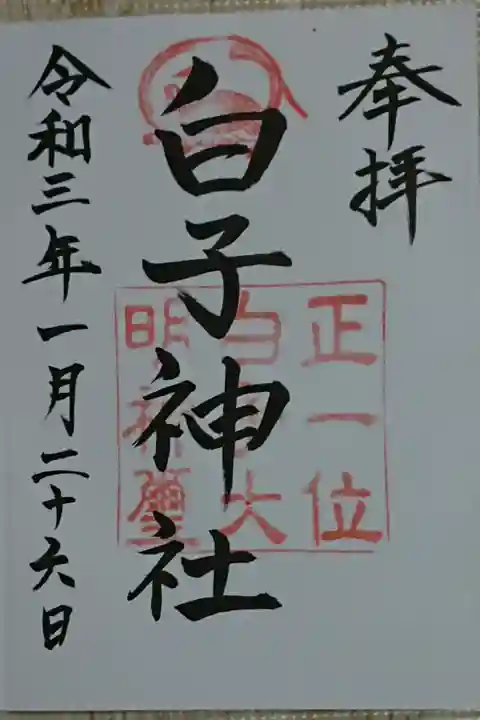 奉拝
白子神社
正一位
白子大
明神璽
令和三年一月二十六日